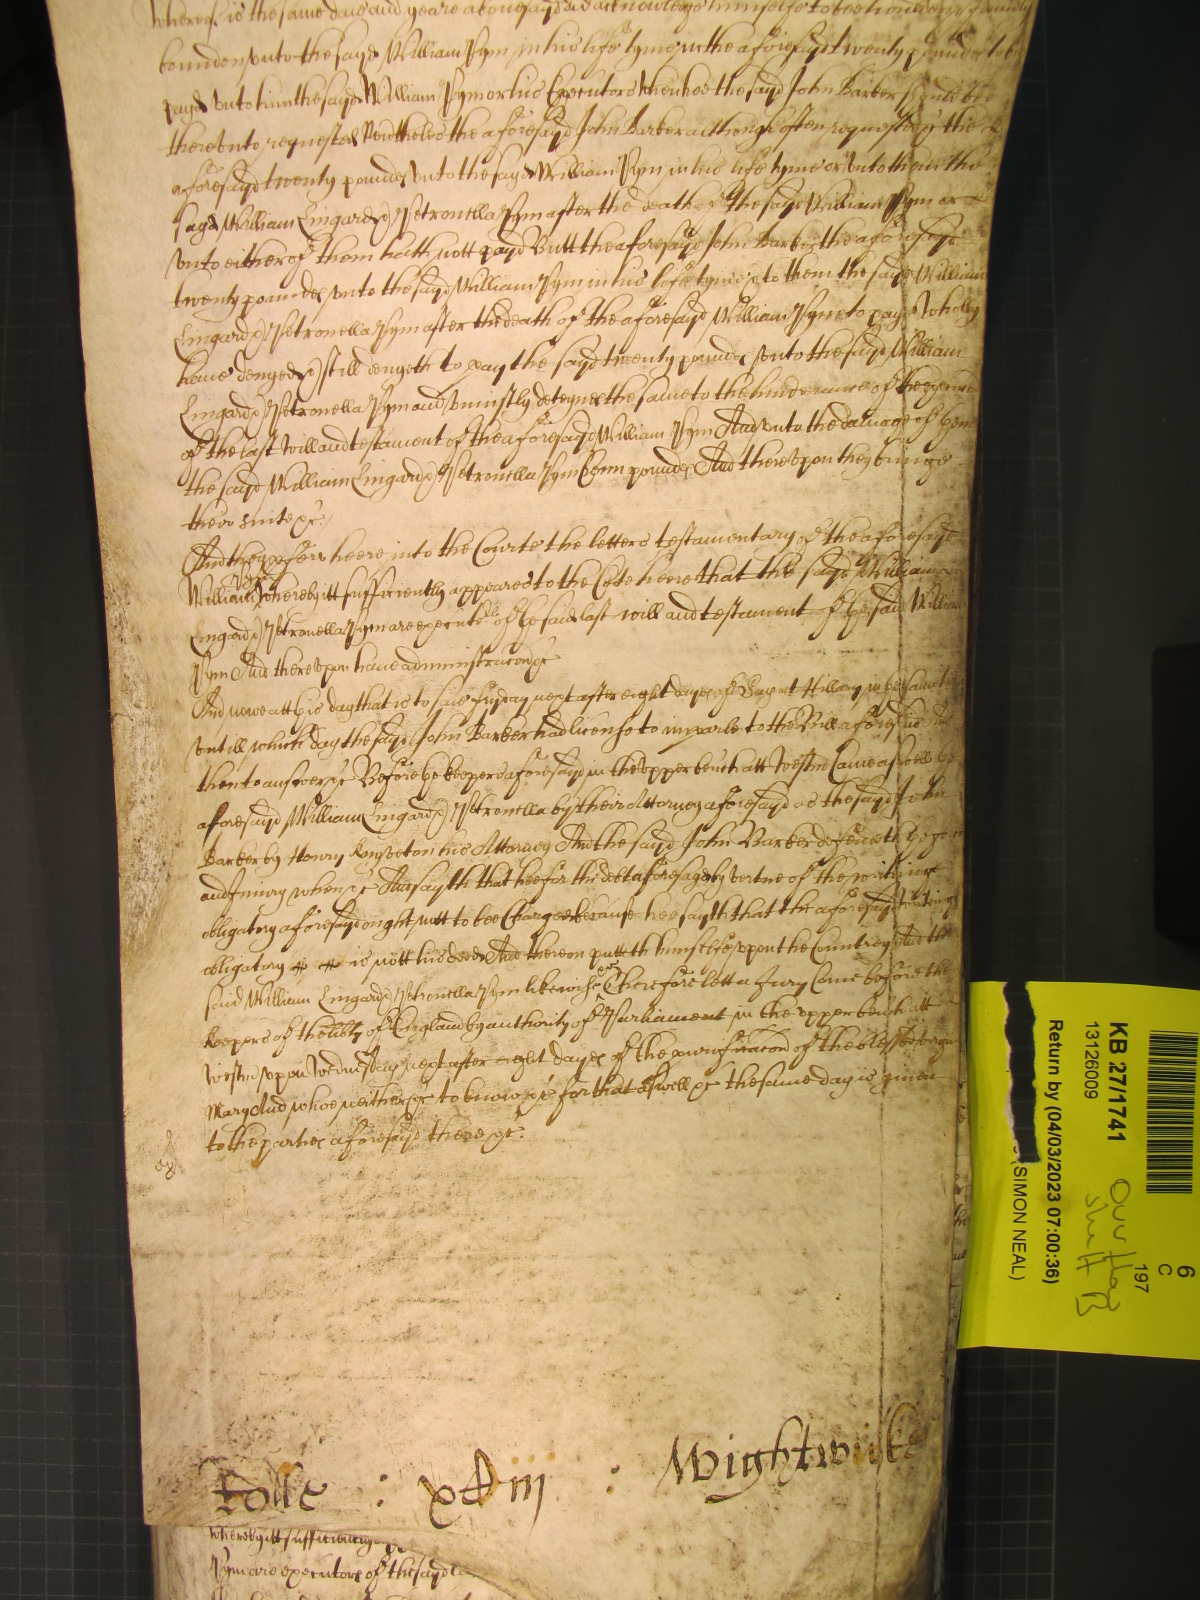 whereof is the same daie and yeare abovesayd did acknowledge himselfe to bee
bounden unto the sayd William Pym in his life tyme in the aforesayd twenty poundes to bee
payd unto him the sayd William Pym or his Executors when hee the sayd John Barker should bee
thereunto requested Neverthelesse the aforesayd John Barker although often requested the
aforesayd twenty poundes unto the sayd William Pym in his life tyme or unto them the
sayd William Lingard & Petronella Pym after the death of the sayd William Pym or
unto either of them hath nott payd Butt the aforesayd John Barker the aforesayd
twenty poundes unto the sayd William Pym in his life tyme & to them the sayd William
Lingard & Petronella Pym after the death of the aforesayd William Pym to pay wholly
have denyed & still denyeth to pay the sayd twenty poundes unto the sayd William
Lingard & Petronella Pym and uniustly deteynes the same to the hinderance of the
of the last will and testament of the aforesayd William Pym And unto the damage of
the sayd William Lingard & Petronella Pym Tenn poundes And thereupon they bringe
their suite &c
And they offer heere into the Courte the letters testamentary of the aforesayd
William Pym whereby itt sufficiently appeares to the Cote heere that the sayd William
Lingard & Petronella Pym are execut of the said last will and testament of the said William
Pym And thereupon have administracon &c
And nowe att this day that is to saie fryday next after eight dayes of Saynt Hillary in
untill which day the sayd John Barker had license to imparle to the Bill aforesaid And
then to answere &c Before the keepers aforesayd in the upper bench att Westm Came aswell the
aforesayd William Lingard & Petronella by their Attorney aforesayd as the sayd John
Barker by Henry his Attorney And the sayd John Barker defendeth the force
and Iniury when &c And sayth that hee for the debt aforesayd by vertue of the writinge
obligatory aforesayd ought nott to bee Charged because hee sayth that the aforesayd writing
obligatory is nott his deed And thereon putteth himselfe upon the Countrey And the
said William Lingard & Petronella Pym likewise &c Therefore lett a Jury Come before the
Keepers of the libty of England by authority of Parliament in the upper bench att
Westm upon Wednesday next after eight dayes of the purificacon of the blessed virgin
Mary And whoe neither &c to know &c for that aswell &c the same day is given
to the parties aforesayd there &c
Rolle : xliii : Wightwicke
whereby itt sufficiently
Pym are executors of the sayd
KB 27/1741
13126009
Return by (04/03/2023 07:00:36)
(SIMON NEAL)
6
C
197